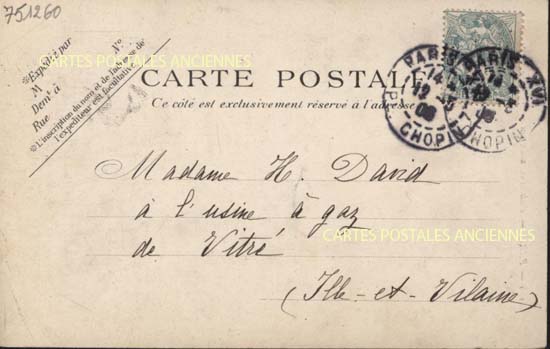 751260
CARTES POSTALES ANCIENNES
Expédié par N°
M
Demt à
Rue
L'inscription du nom et de l'adresse de
l'expéditeur est facultative.
CARTE POSTALE
Ce côté est exclusivement réservé à l'adresse
PARIS
CHOPIN
PARIS XVI
CHOPIN
Madame H. David
à l'usine à gaz
CARTES POSTALES ANCIENNES
de Vitré
(Ille-et-Vilaine)